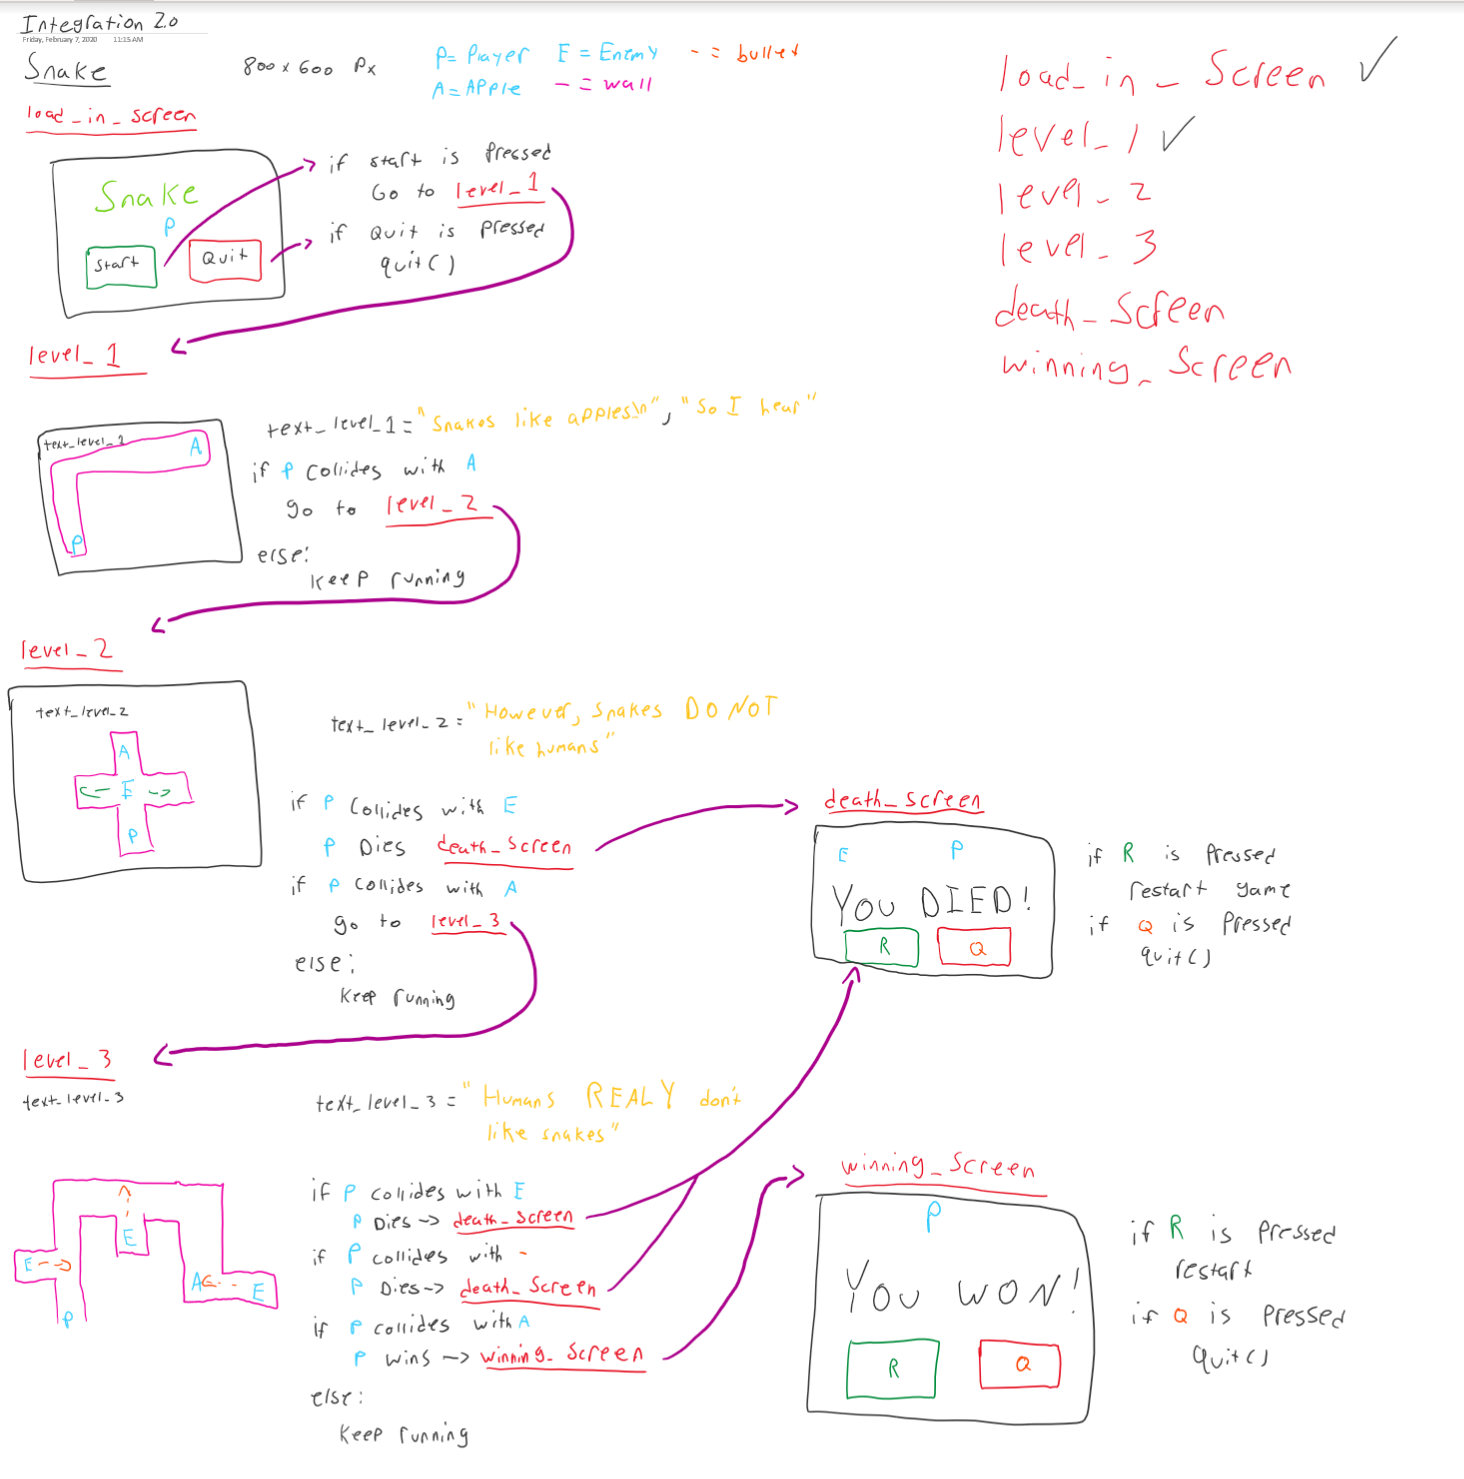 Integration 2.0
Friday, February 7, 2020 11:15 AM
Snake
800 x 600 Px
P = Player E = Enemy - = bullet
A = APPle - = wall
load_in_screen
Snake
P
Start
Quit
if start is Pressed
Go to level_1
if Quit is pressed
quit()
load_in_Screen ✓
level_1 ✓
level_2
level_3
death_Screen
winning_Screen
level_1
text_level_1
A
P
text_level_1 = "Snakes like apples\n", "So I hear"
if P Collides with A
go to level_2
else:
Keep running
level_2
text_level_2
A
E
P
text_level_2 = "However, snakes DO NOT
like humans"
if P Collides with E
P Dies death_Screen
if P Collides with A
go to level_3
else:
Keep running
death_Screen
E P
You DIED!
R Q
if R is Pressed
restart game
if Q is Pressed
quit()
level_3
text_level_3
E
E
A
E
P
text_level_3 = "Humans REALY don't
like snakes"
if P collides with E
P Dies -> death_Screen
if P collides with -
P Dies -> death_Screen
if P collides with A
P wins -> winning_Screen
else:
Keep running
winning_Screen
P
You WON!
R Q
if R is Pressed
restart
if Q is Pressed
Quit()